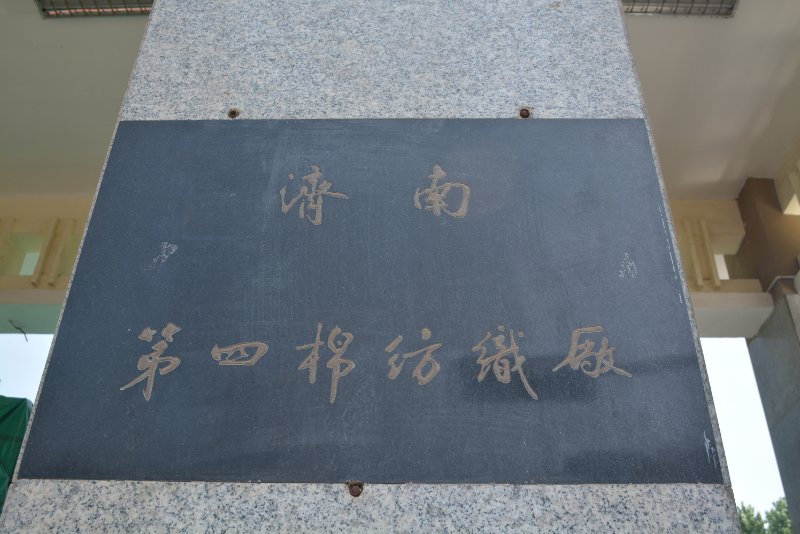 濟南
第四棉纺織廠